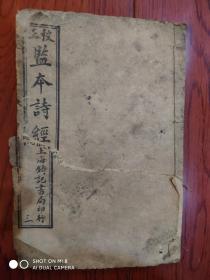 三校
監本詩經
上海鑄記書局印行
三
SHOT ON MI 8
AI DUAL CAMERA